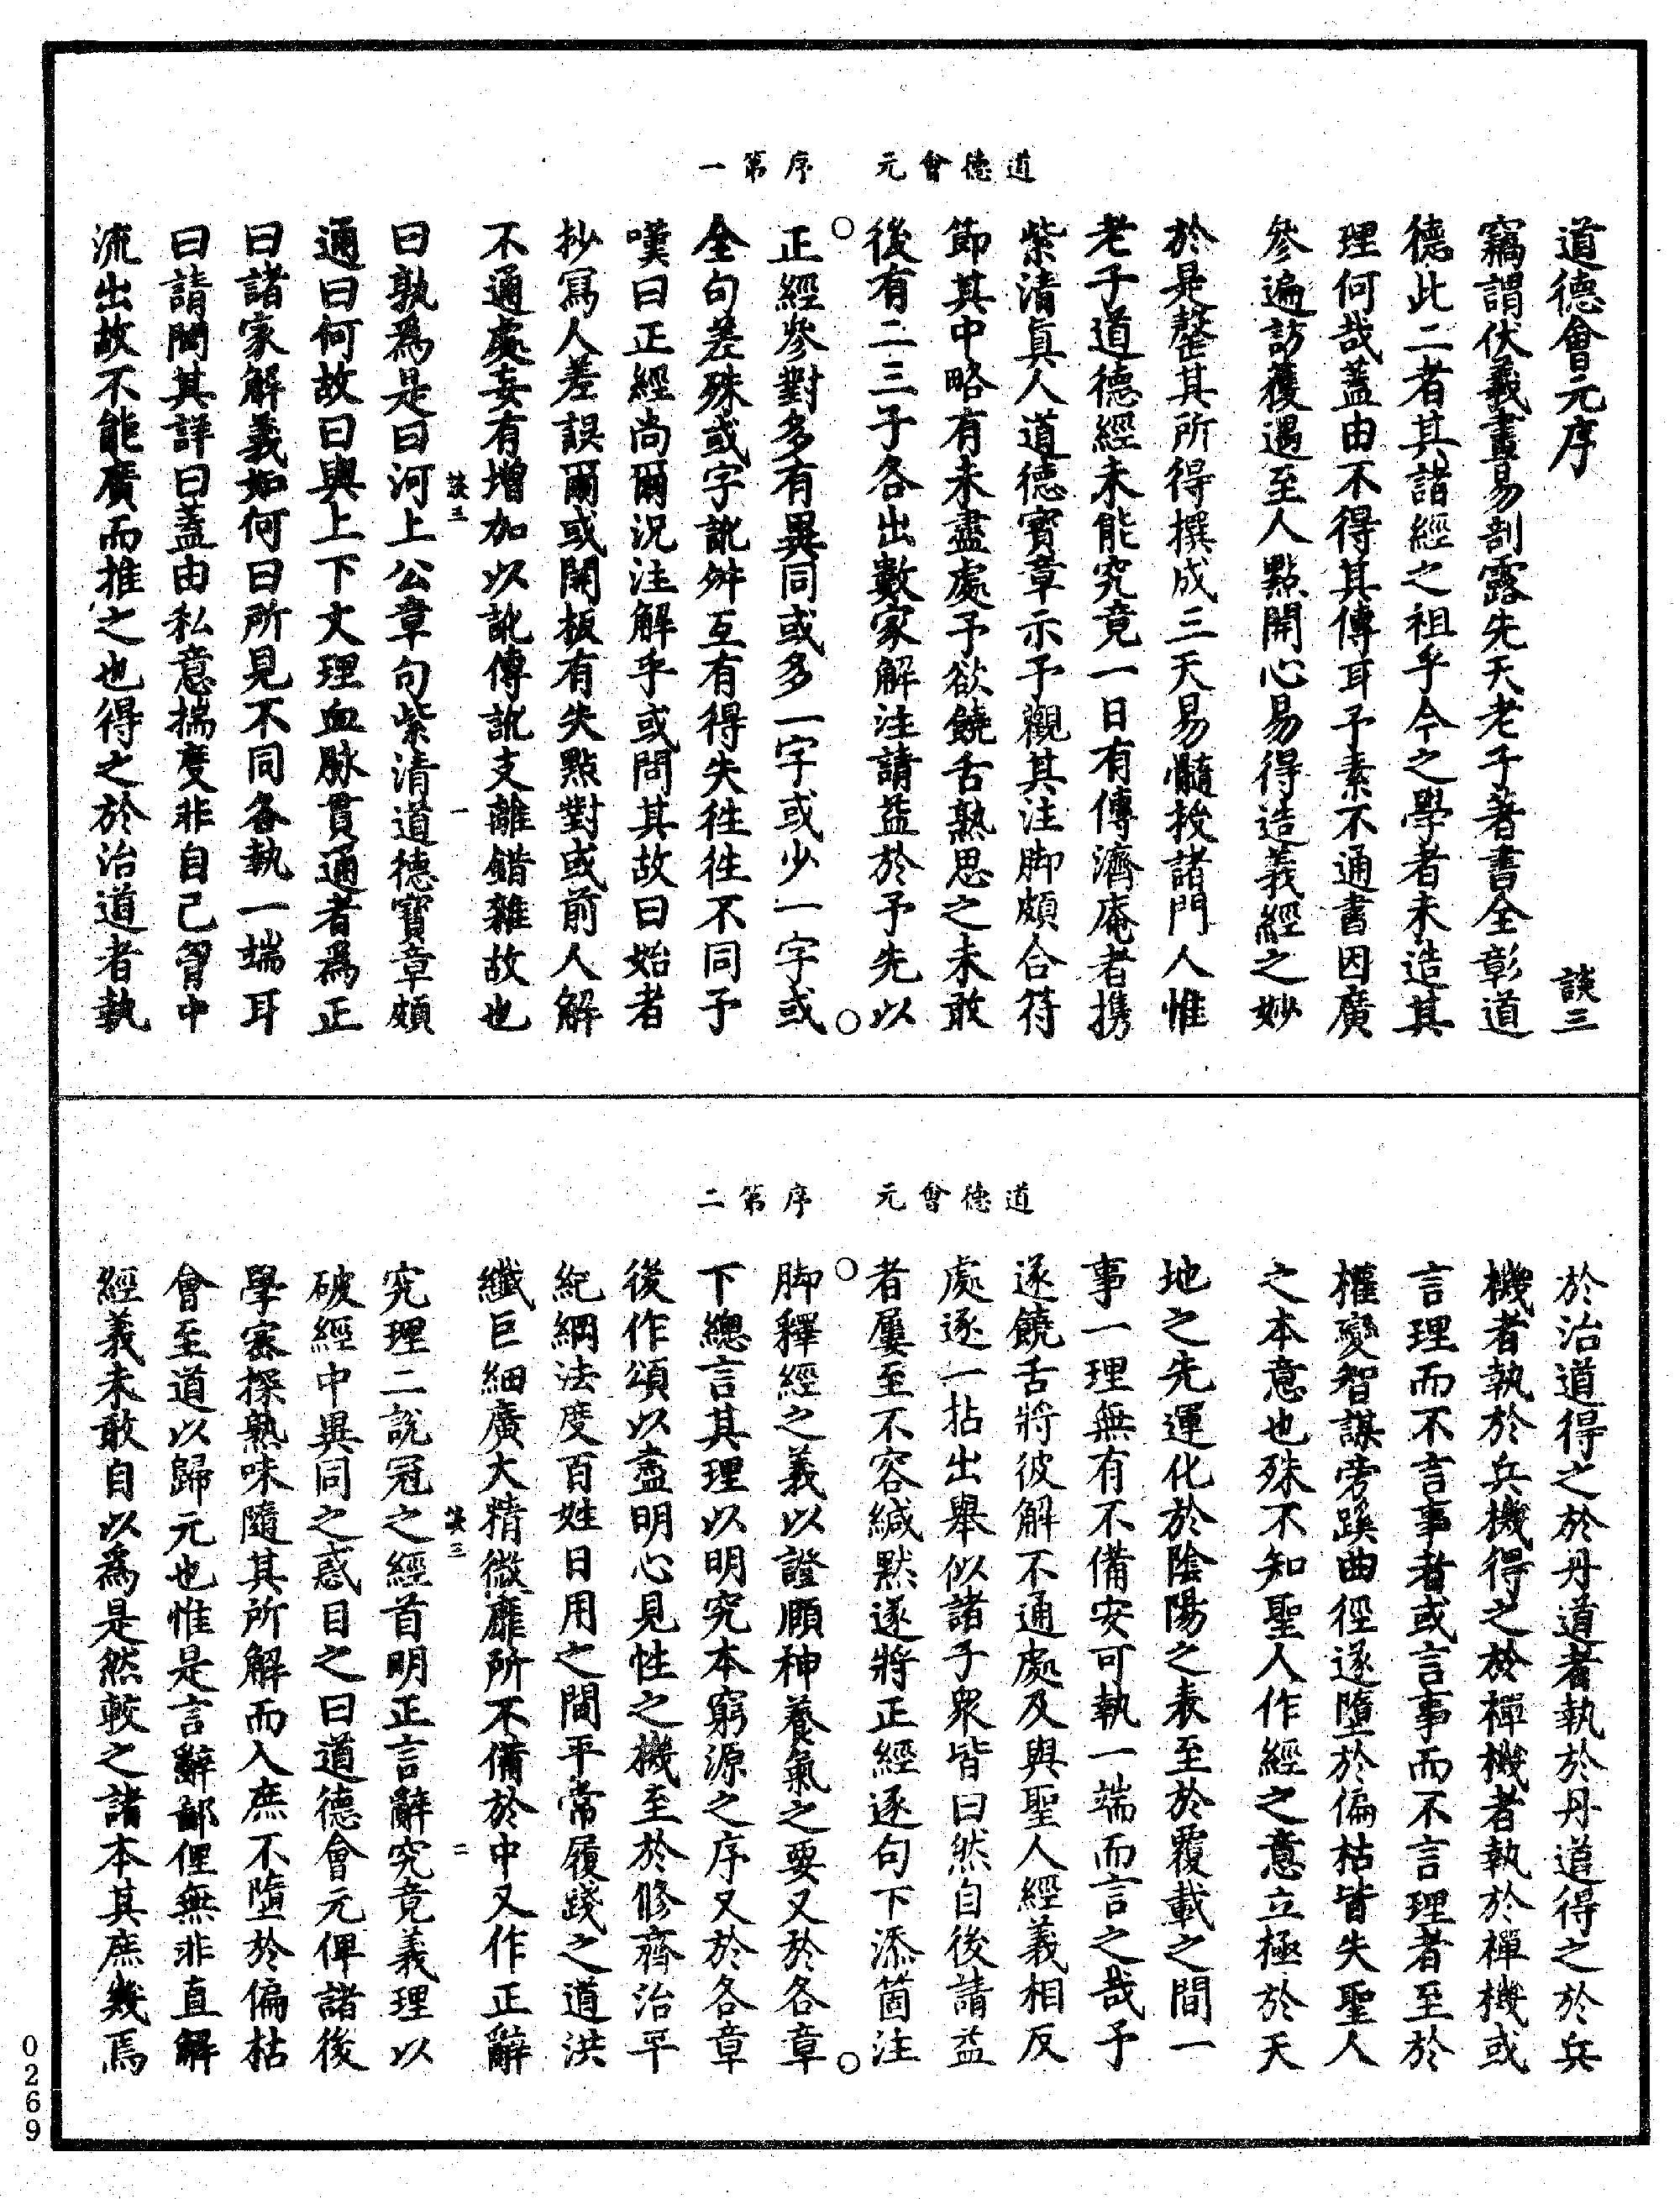 道德會元　序第一
道德會元序　談三
竊謂伏羲畫易剖露先天老子著書全彰道
德此二者其諸經之祖乎今之學者未造其
理何哉蓋由不得其傳耳予素不通書因廣
參遍訪獲遇至人點開心易得造義經之妙
於是罄其所得撰成三天易髓授諸門人惟
老子道德經未能究竟一日有傳濟庵者携
紫清真人道德寶章示予觀其注脚頗合符
節其中略有未盡處予欲饒舌熟思之未敢
後有二三子各出數家解注請益於予先以
正經參對多有異同或多一字或少一字或
全句差殊或字訛舛互有得失徃徃不同予
嘆曰正經尚爾況注解乎或問其故曰始者
抄寫人差誤爾或開板有失點對或前人解
不通處妄有增加以訛傳訛支離錯雜故也
談三　一
曰孰為是曰河上公章句紫清道德寶章頗
通曰何故曰與上下文理血脉貫通者爲正
曰諸家解義如何曰所見不同各執一端耳
曰請聞其詳曰蓋由私意揣度非自己胷中
流出故不能廣而推之也得之於治道者執
道德會元　序第二
於治道得之於丹道者執於丹道得之於兵
機者執於兵機得之於禪機者執於禪機或
言理而不言事者或言事而不言理者至於
權變智謀旁蹊曲徑遂墮於偏枯皆失聖人
之本意也殊不知聖人作經之意立極於天
地之先運化於陰陽之表至於覆載之間一
事一理無有不備安可執一端而言之哉予
遂饒舌將彼解不通處及與聖人經義相反
處逐一拈出舉似諸子衆皆曰然自後請益
者屢至不容緘默遂將正經逐句下添箇注
脚釋經之義以證頤神養氣之要又於各章
下總言其理以明究本窮源之序又於各章
後作頌以盡明心見性之機至於修齊治平
紀綱法度百姓日用之間平常履踐之道洪
纖巨細廣大精微靡所不備於中又作正辭
談三　二
究理二說冠之經首明正言辭究竟義理以
破經中異同之惑目之曰道德會元俾諸後
學審探熟味隨其所解而入庶不墮於偏枯
會至道以歸元也惟是言辭鄙俚無非直解
經義未敢自以爲是然較之諸本其庶幾焉
0269